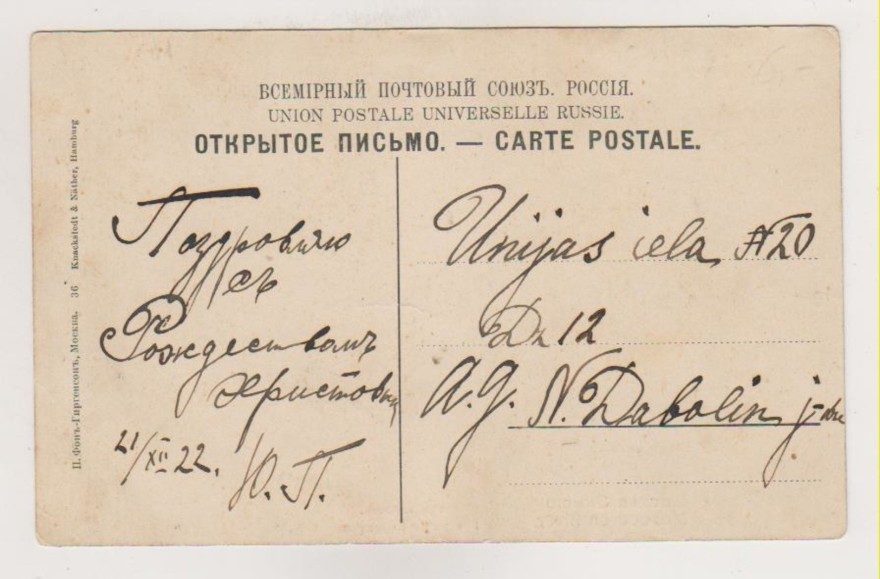 ВСЕМІРНЫЙ ПОЧТОВЫЙ СОЮЗЪ. РОССІЯ.
UNION POSTALE UNIVERSELLE RUSSIE.
ОТКРЫТОЕ ПИСЬМО. — CARTE POSTALE.
П. Фонъ-Гиргенсонъ, Москва. 36 Knackstedt & Näther, Hamburg
Поздровляю
съ
Рождествомъ
Христовы
21/XII 22.
Ю. П.
Unijas iela № 20
Dz 12
A. g. N. Dabolin